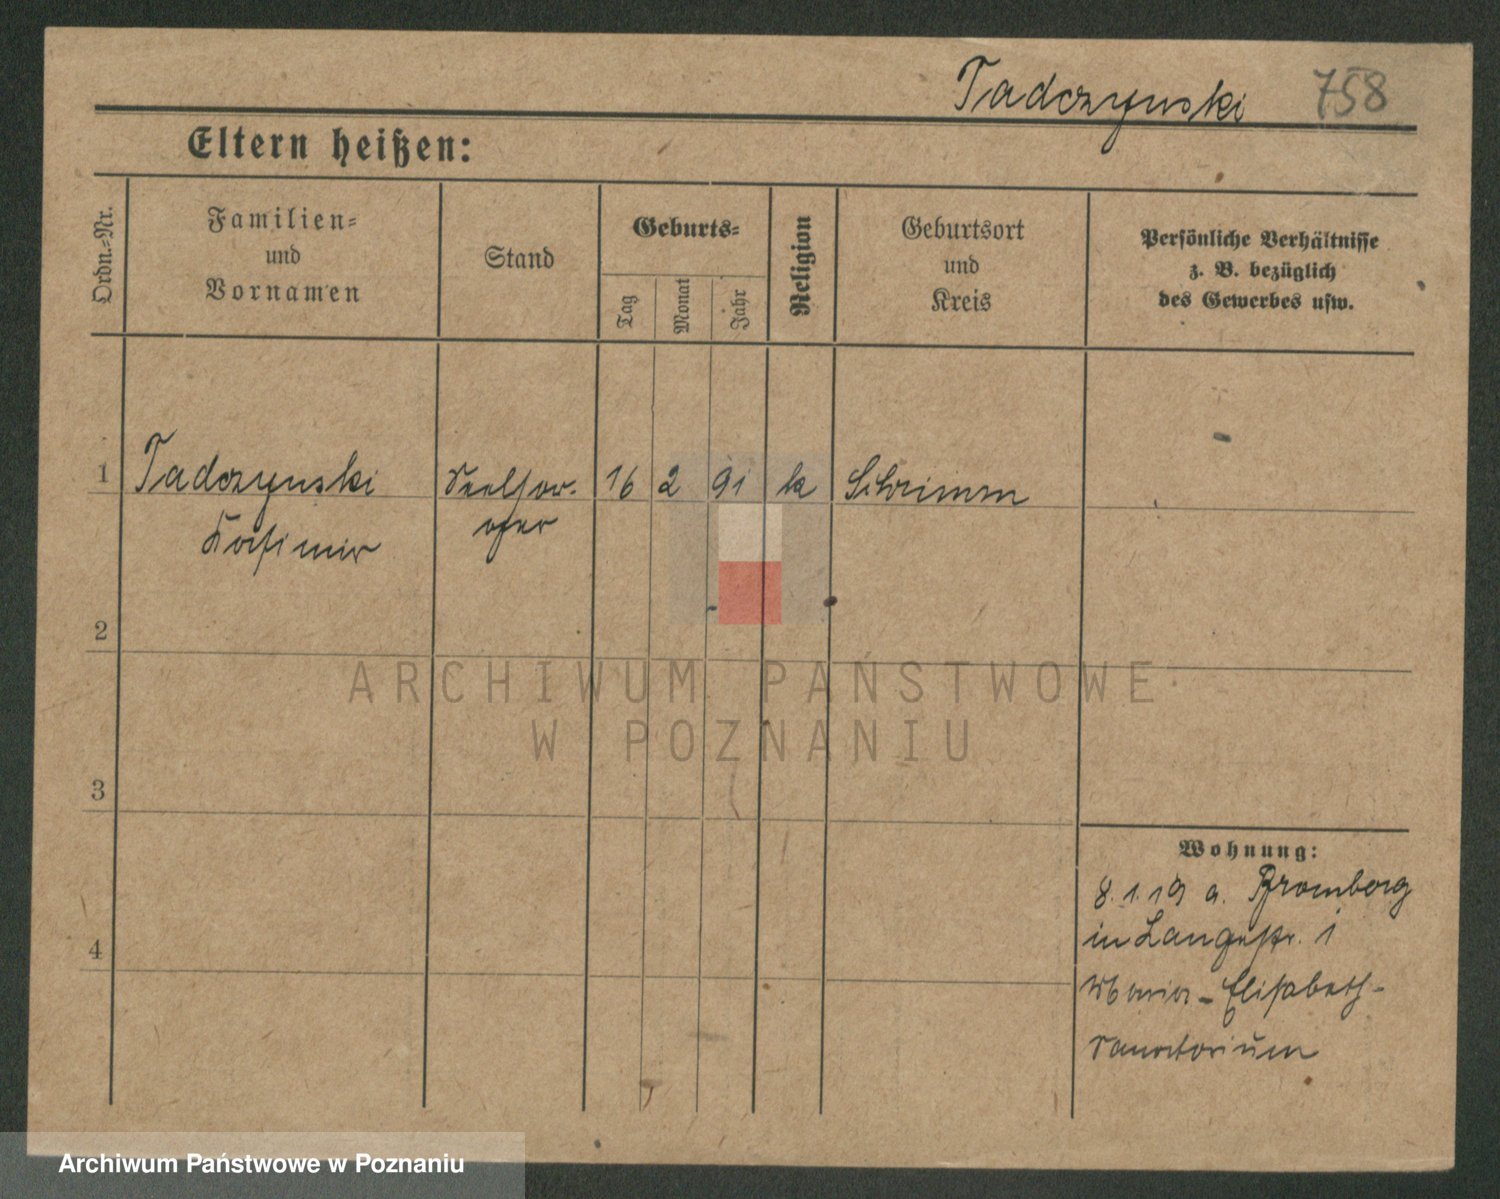 Tadczynski 758
Eltern heißen:
Ordn.-Nr.
Familien-
und
Vornamen
Stand
Geburts-
Tag
Monat
Jahr
Religion
Geburtsort
und
Kreis
Persönliche Verhältnisse
z. B. bezüglich
des Gewerbes usw.
1 Tadczynski Seelsor- 16 2 91 k Schrimm
Kasimir
2
ARCHIWUM PAŃSTWOWE
W POZNANIU
3
Wohnung:
8.1.19 a. Bromberg
in Langestr. 1
4
Maria-Elisabeth-
Sanatorium
Archiwum Państwowe w Poznaniu